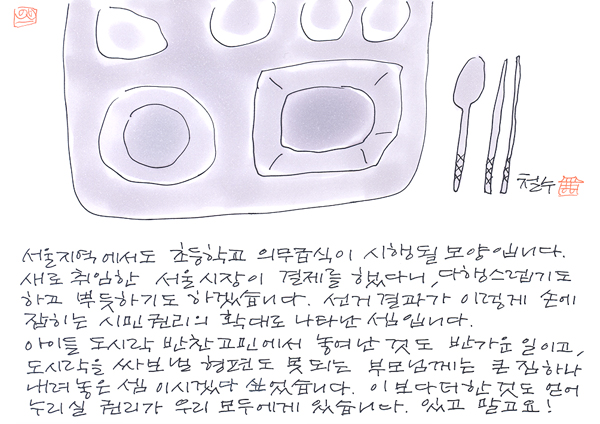 철수
서울지역에서도 초등학교 의무급식이 시행될 모양입니다.
새로 취임한 서울시장이 결제를 했다니, 다행스럽기도
하고 뿌듯하기도 하겠습니다. 선거결과가 이렇게 손에
잡히는 시민권리의 확대로 나타난 셈입니다.
아이들 도시락 반찬고민에서 놓여난 것도 반가운 일이고,
도시락을 싸보낼 형편도 못되는 부모님께는 큰 짐하나
내려놓은 셈 이시겠다 싶었습니다. 이보다더한것도 얻어
누리실 권리가 우리 모두에게 있습니다. 있고 말고요!